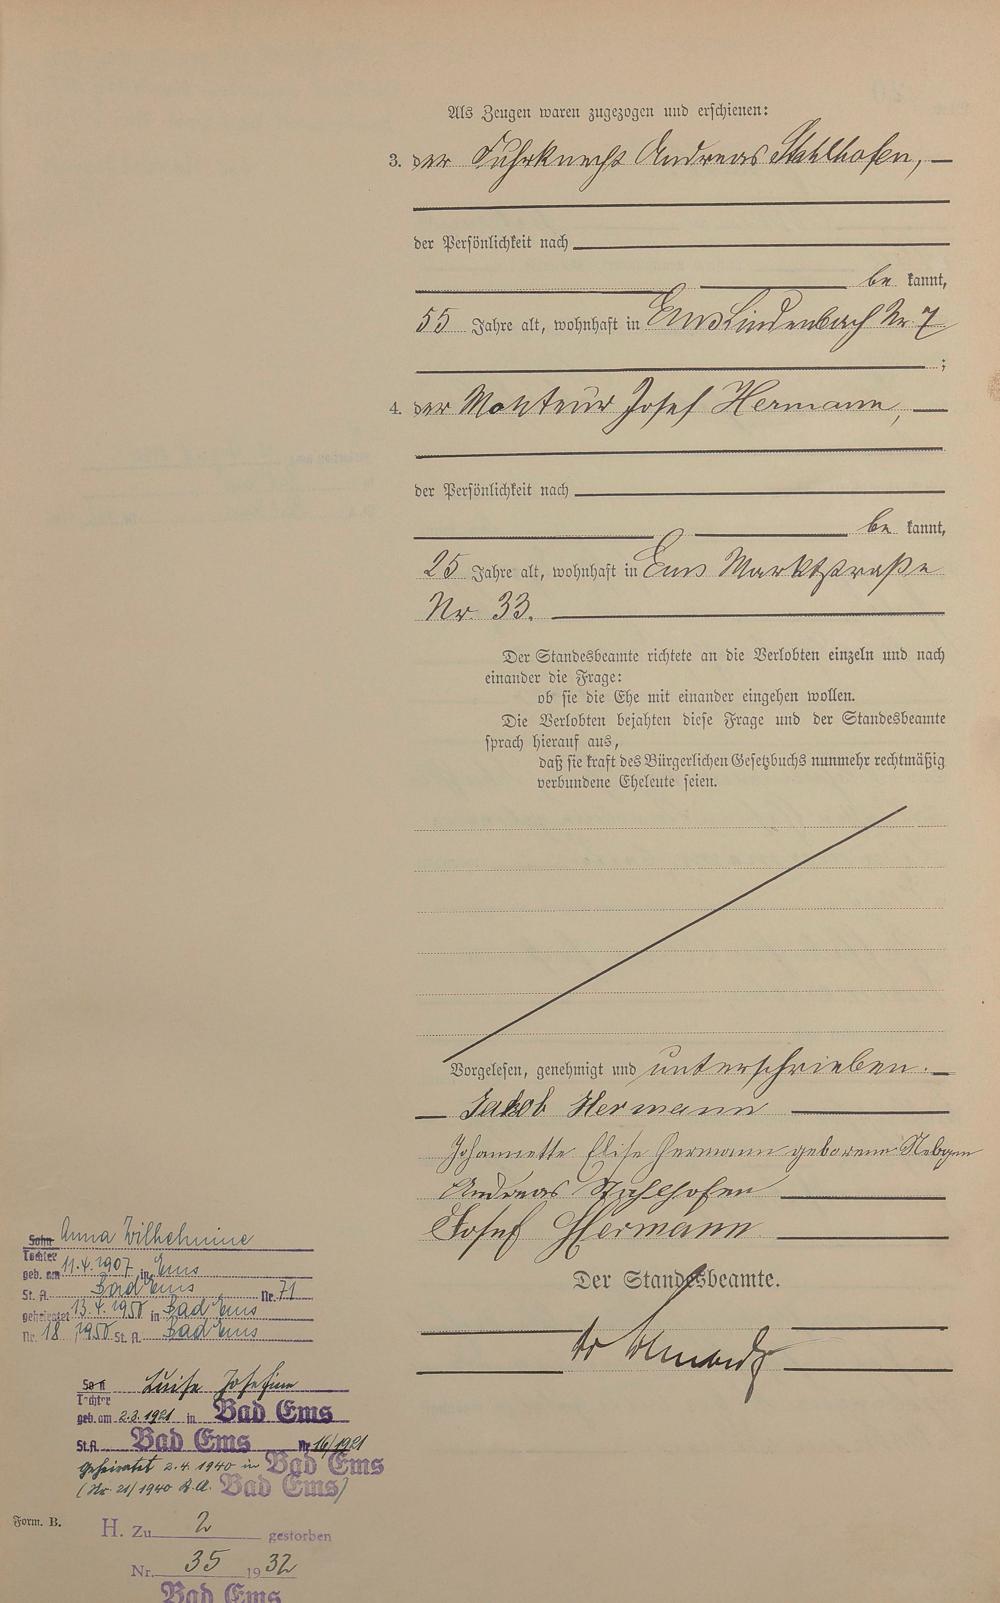 Als Zeugen waren zugezogen und erschienen:
3. der Fuhrknecht Andreas Stahlhofen,
der Persönlichkeit nach
be kannt,
55 Jahre alt, wohnhaft in Ems Lindenbach Nr 7
;
4. der Monteur Josef Hermann,
der Persönlichkeit nach
be kannt,
25 Jahre alt, wohnhaft in Ems Marktstraße
Nr. 33.
Der Standesbeamte richtete an die Verlobten einzeln und nach
einander die Frage:
ob sie die Ehe mit einander eingehen wollen.
Die Verlobten bejahten diese Frage und der Standesbeamte
sprach hierauf aus,
daß sie kraft des Bürgerlichen Gesetzbuchs nunmehr rechtmäßig
verbundene Eheleute seien.
Vorgelesen, genehmigt und unterschrieben.
Jakob Hermann
Johannette Elise Hermann geborene
Andreas Stahlhofen
Josef Hermann
Der Standesbeamte.
Sohn Anna Wilhelmine
Tochter
geb. am 11.4.1907 in Ems
St. A. Bad Ems Nr. 71
geheiratet 13.4.1950 in Bad Ems
Nr. 18/1950 St. A. Bad Ems
Sohn Luise Josefine
Tochter
geb. am 2.3.1921 in Bad Ems
St. A. Bad Ems Nr. 16/1921
Geheiratet 2.4.1940 in Bad Ems
(Nr. 21/1940 St.A. Bad Ems)
Form. B.
H. Zu 2 gestorben
Nr. 35 1932
Bad Ems